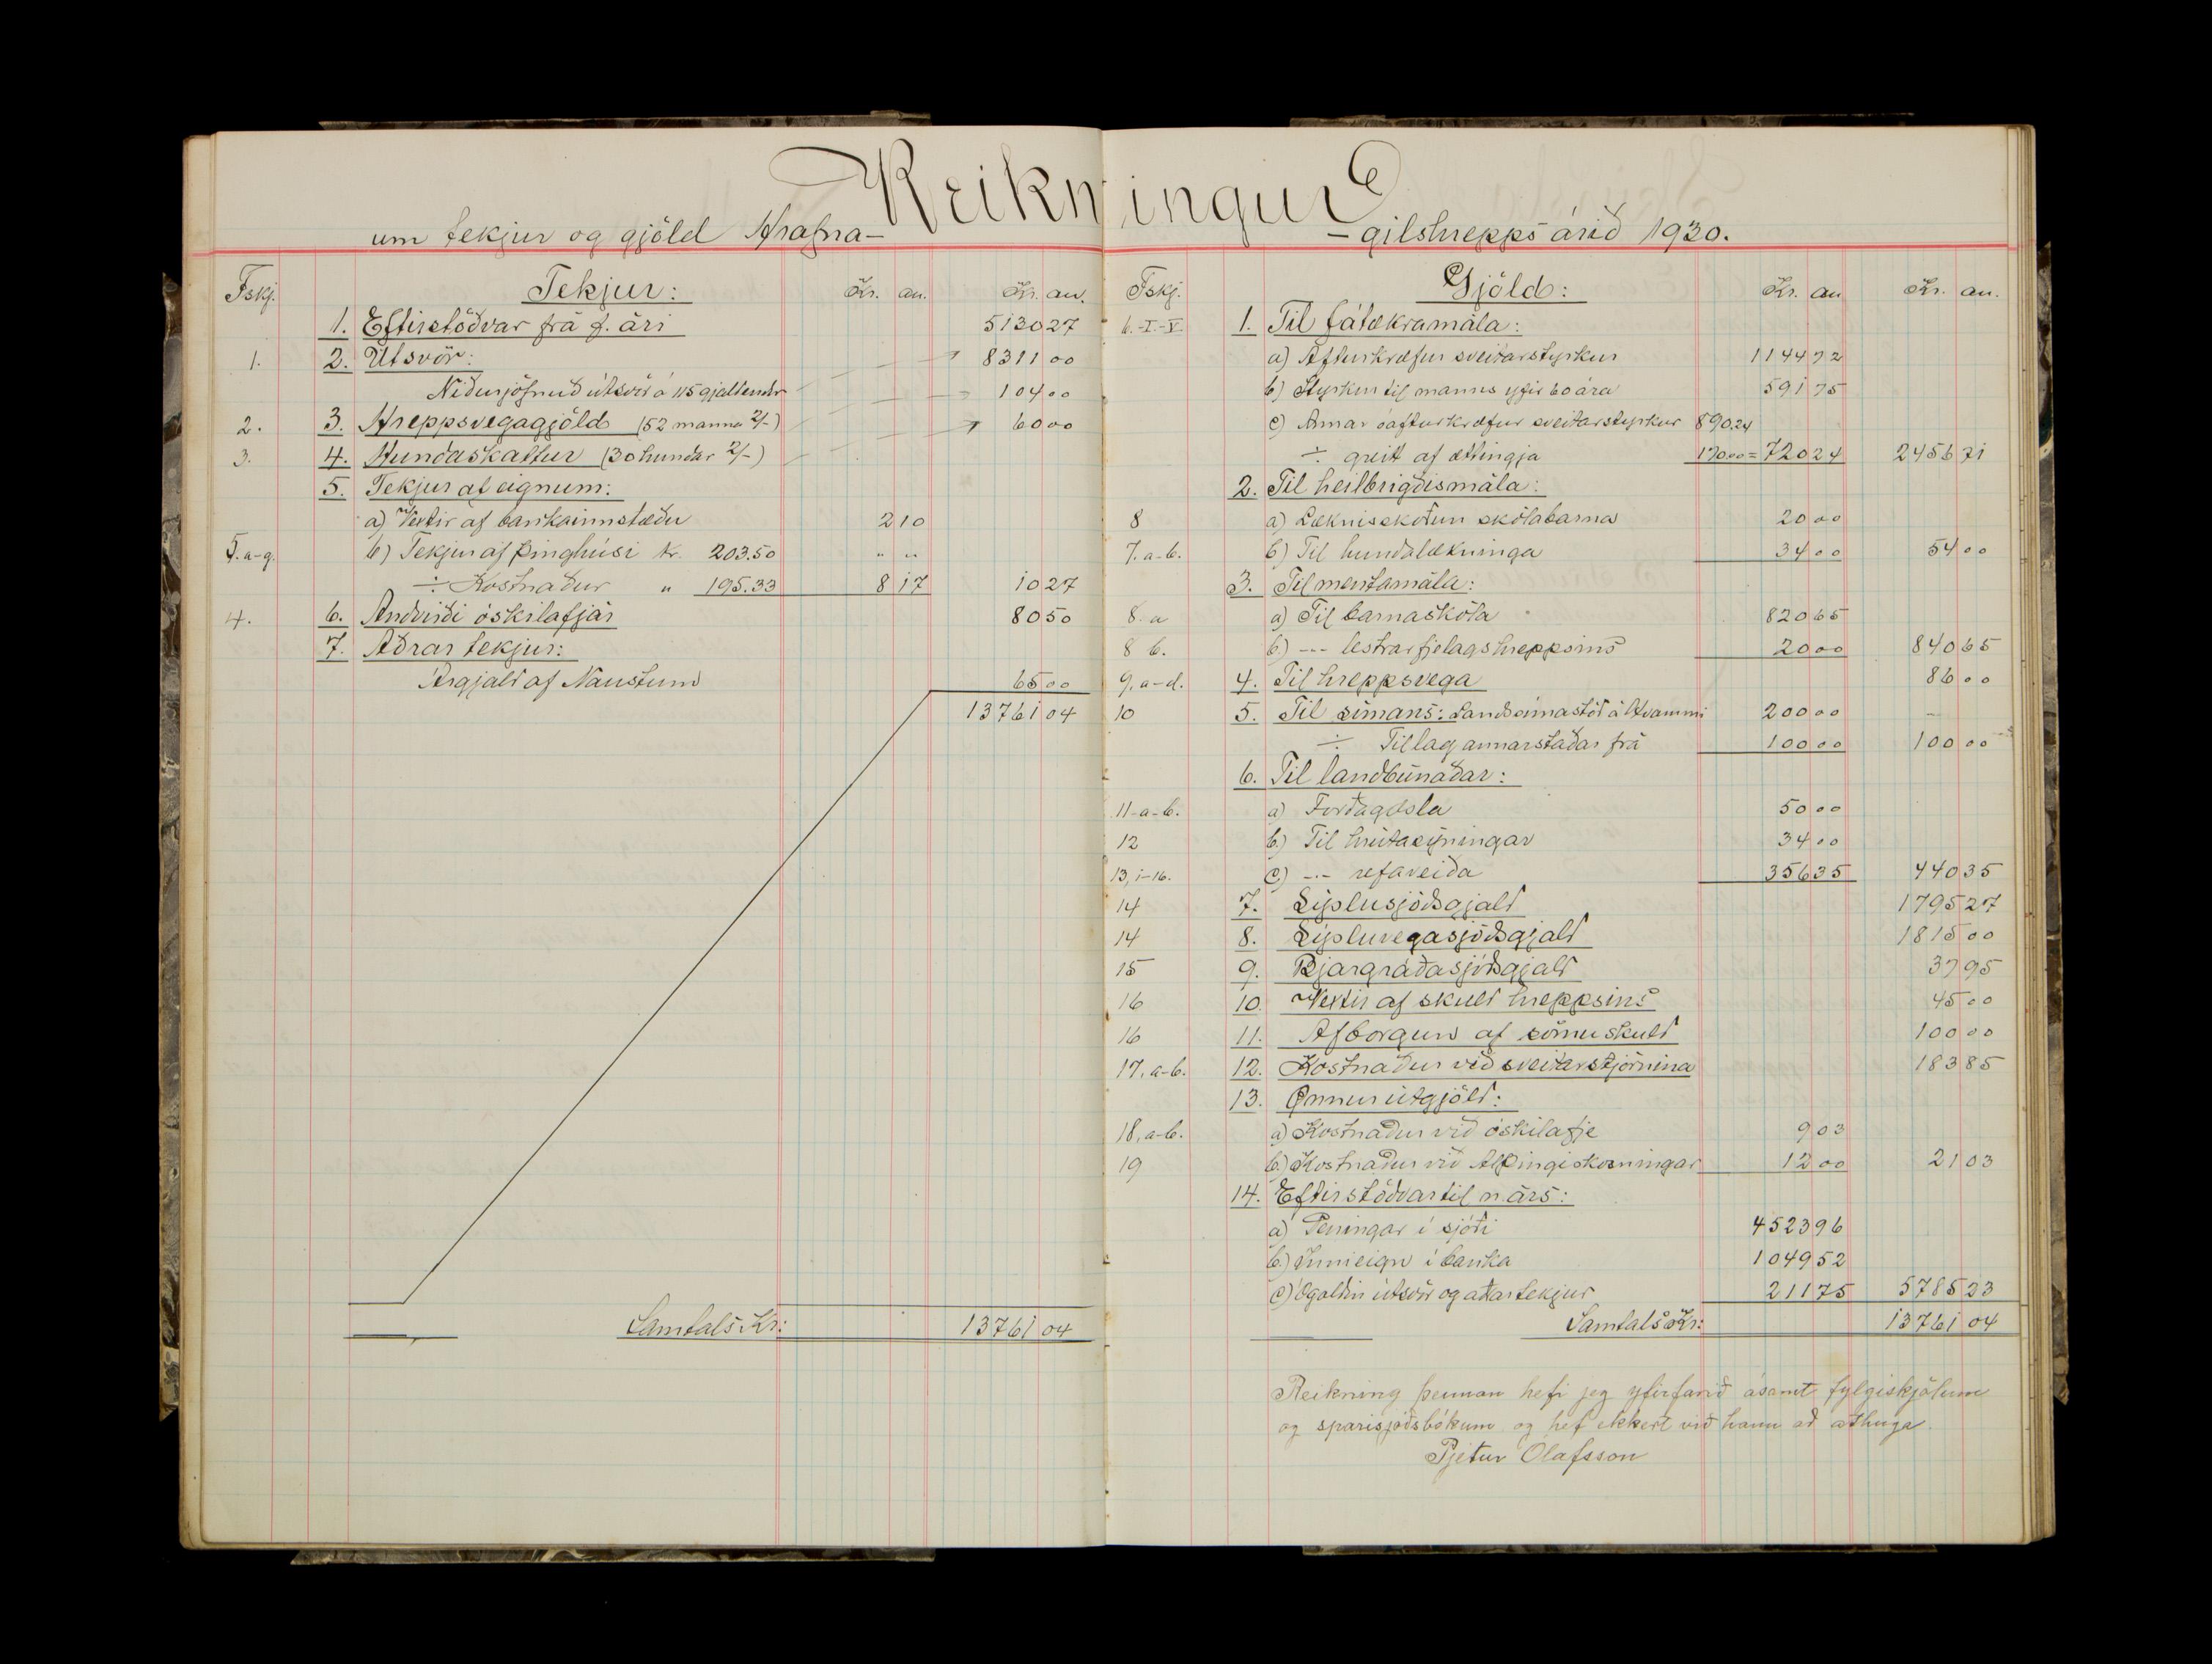 Reikningur
um tekjur og gjöld Hrafna- -gilshrepps árið 1930.
Fskj. Tekjur: Kr. au. Kr. au.
1. Eftirstöðvar frá f. ári 5130 27
1. 2. Útsvör: 8311 00
Niðurjöfnuð útsvör á 115 gjaldendur 104 00
2. 3. Hreppsvegagjöld (52 manna 2/-) 60 00
3. 4. Hundaskattur (30 hundar 2/-)
5. Tekjur af eignum:
a) Vextir af bankainnstæðu 2 10
5. a-g. b) Tekjur af þinghúsi kr. 203.50 " "
÷ Kostnaður " 195.33 8 17 10 27
4. 6. Andvirði óskilafjár 80 50
7. Aðrar tekjur:
Árgjald af Naustum 65 00
13761 04
Samtals Kr: 13761 04
Fskj. Gjöld: Kr. au Kr. au.
6.-I.-V. 1. Til fátækramála:
a) Afturkræfur sveitarstyrkur 1144 72
b) Styrkur til manns yfir 60 ára 591 75
c) Annar óafturkræfur sveitarstyrkur 890.24
÷ greitt af ættingja 170.00 = 720 24 2456 71
2. Til heilbrigðismála:
8 a) Læknisskoðun skólabarna 20 00
7. a-b. b) Til hundalækninga 34 00 54 00
3. Til mentamála:
8. a a) Til barnaskóla 820 65
8 b. b) --- lestrarfjelags hreppsins 20 00 840 65
9, a-d. 4. Til hreppsvega 86 00
10 5. Til símans: Landsímastöð á Hvammi 200 00
÷ Tillag annarstaðar frá 100 00 100 00
6. Til landbúnaðar:
11-a-b. a) Forðagæsla 50 00
12 b.) Til hrútasýningar 34 00
13, 1-16. c) -.- refaveiða 356 35 440 35
14 7. Sýslusjóðsgjald 1795 27
14 8. Sýsluvegasjóðsgjald 1815 00
15 9. Bjargráðasjóðsgjald 37 95
16 10. Vextir af skuld hreppsins 45 00
16 11. Afborgun af sömu skuld 100 00
17, a-b. 12. Kostnaður við sveitarstjórnina 183 85
13. Önnur útgjöld:
18, a-b. a) Kostnaður við óskilafje 9 03
19 b.) Kostnaður við Alþingiskosningar 12 00 21 03
14. Eftirstöðvar til n. árs:
a) Peningar í sjóði 4523 96
b.) Innieign í banka 1049 52
c) Ógoldin útsvör og aðrar tekjur 211 75 5785 23
Samtals Kr: 13761 04
Reikning þennan hefi jeg yfirfarið ásamt fylgiskjölum
og sparisjóðsbókum og hef ekkert við hann að athuga.
Pjetur Ólafsson